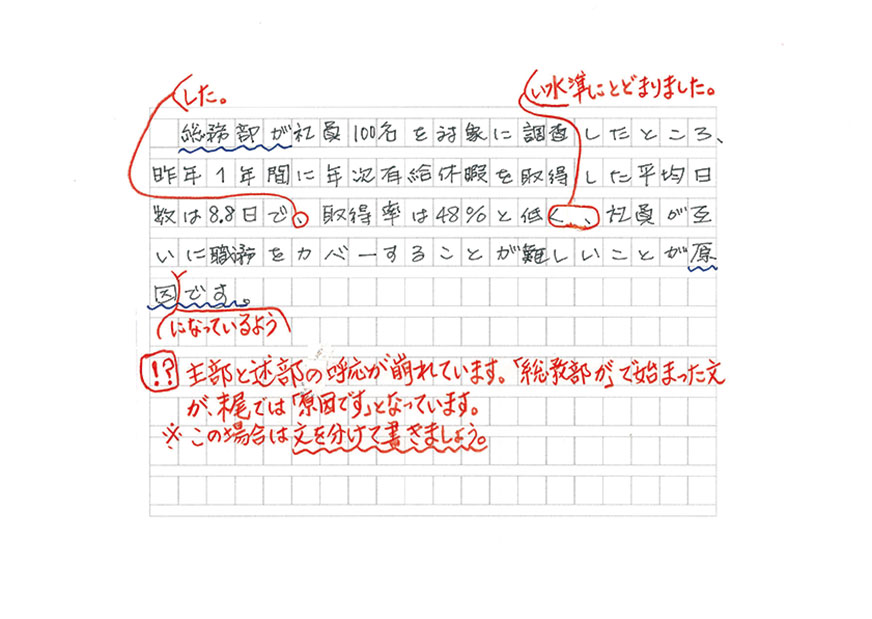 した。
い水準にとどまりました。
総務部が社員100名を対象に調査したところ、
昨年1年間に年次有給休暇を取得した平均日
数は8.8日で、取得率は48%と低く、社員が互
いに職務をカバーすることが難しいことが原
因です。
になっているよう
!? 主部と述部の呼応が崩れています。「総務部が」で始まった文
が、末尾では「原因です」となっています。
※この場合は文を分けて書きましょう。